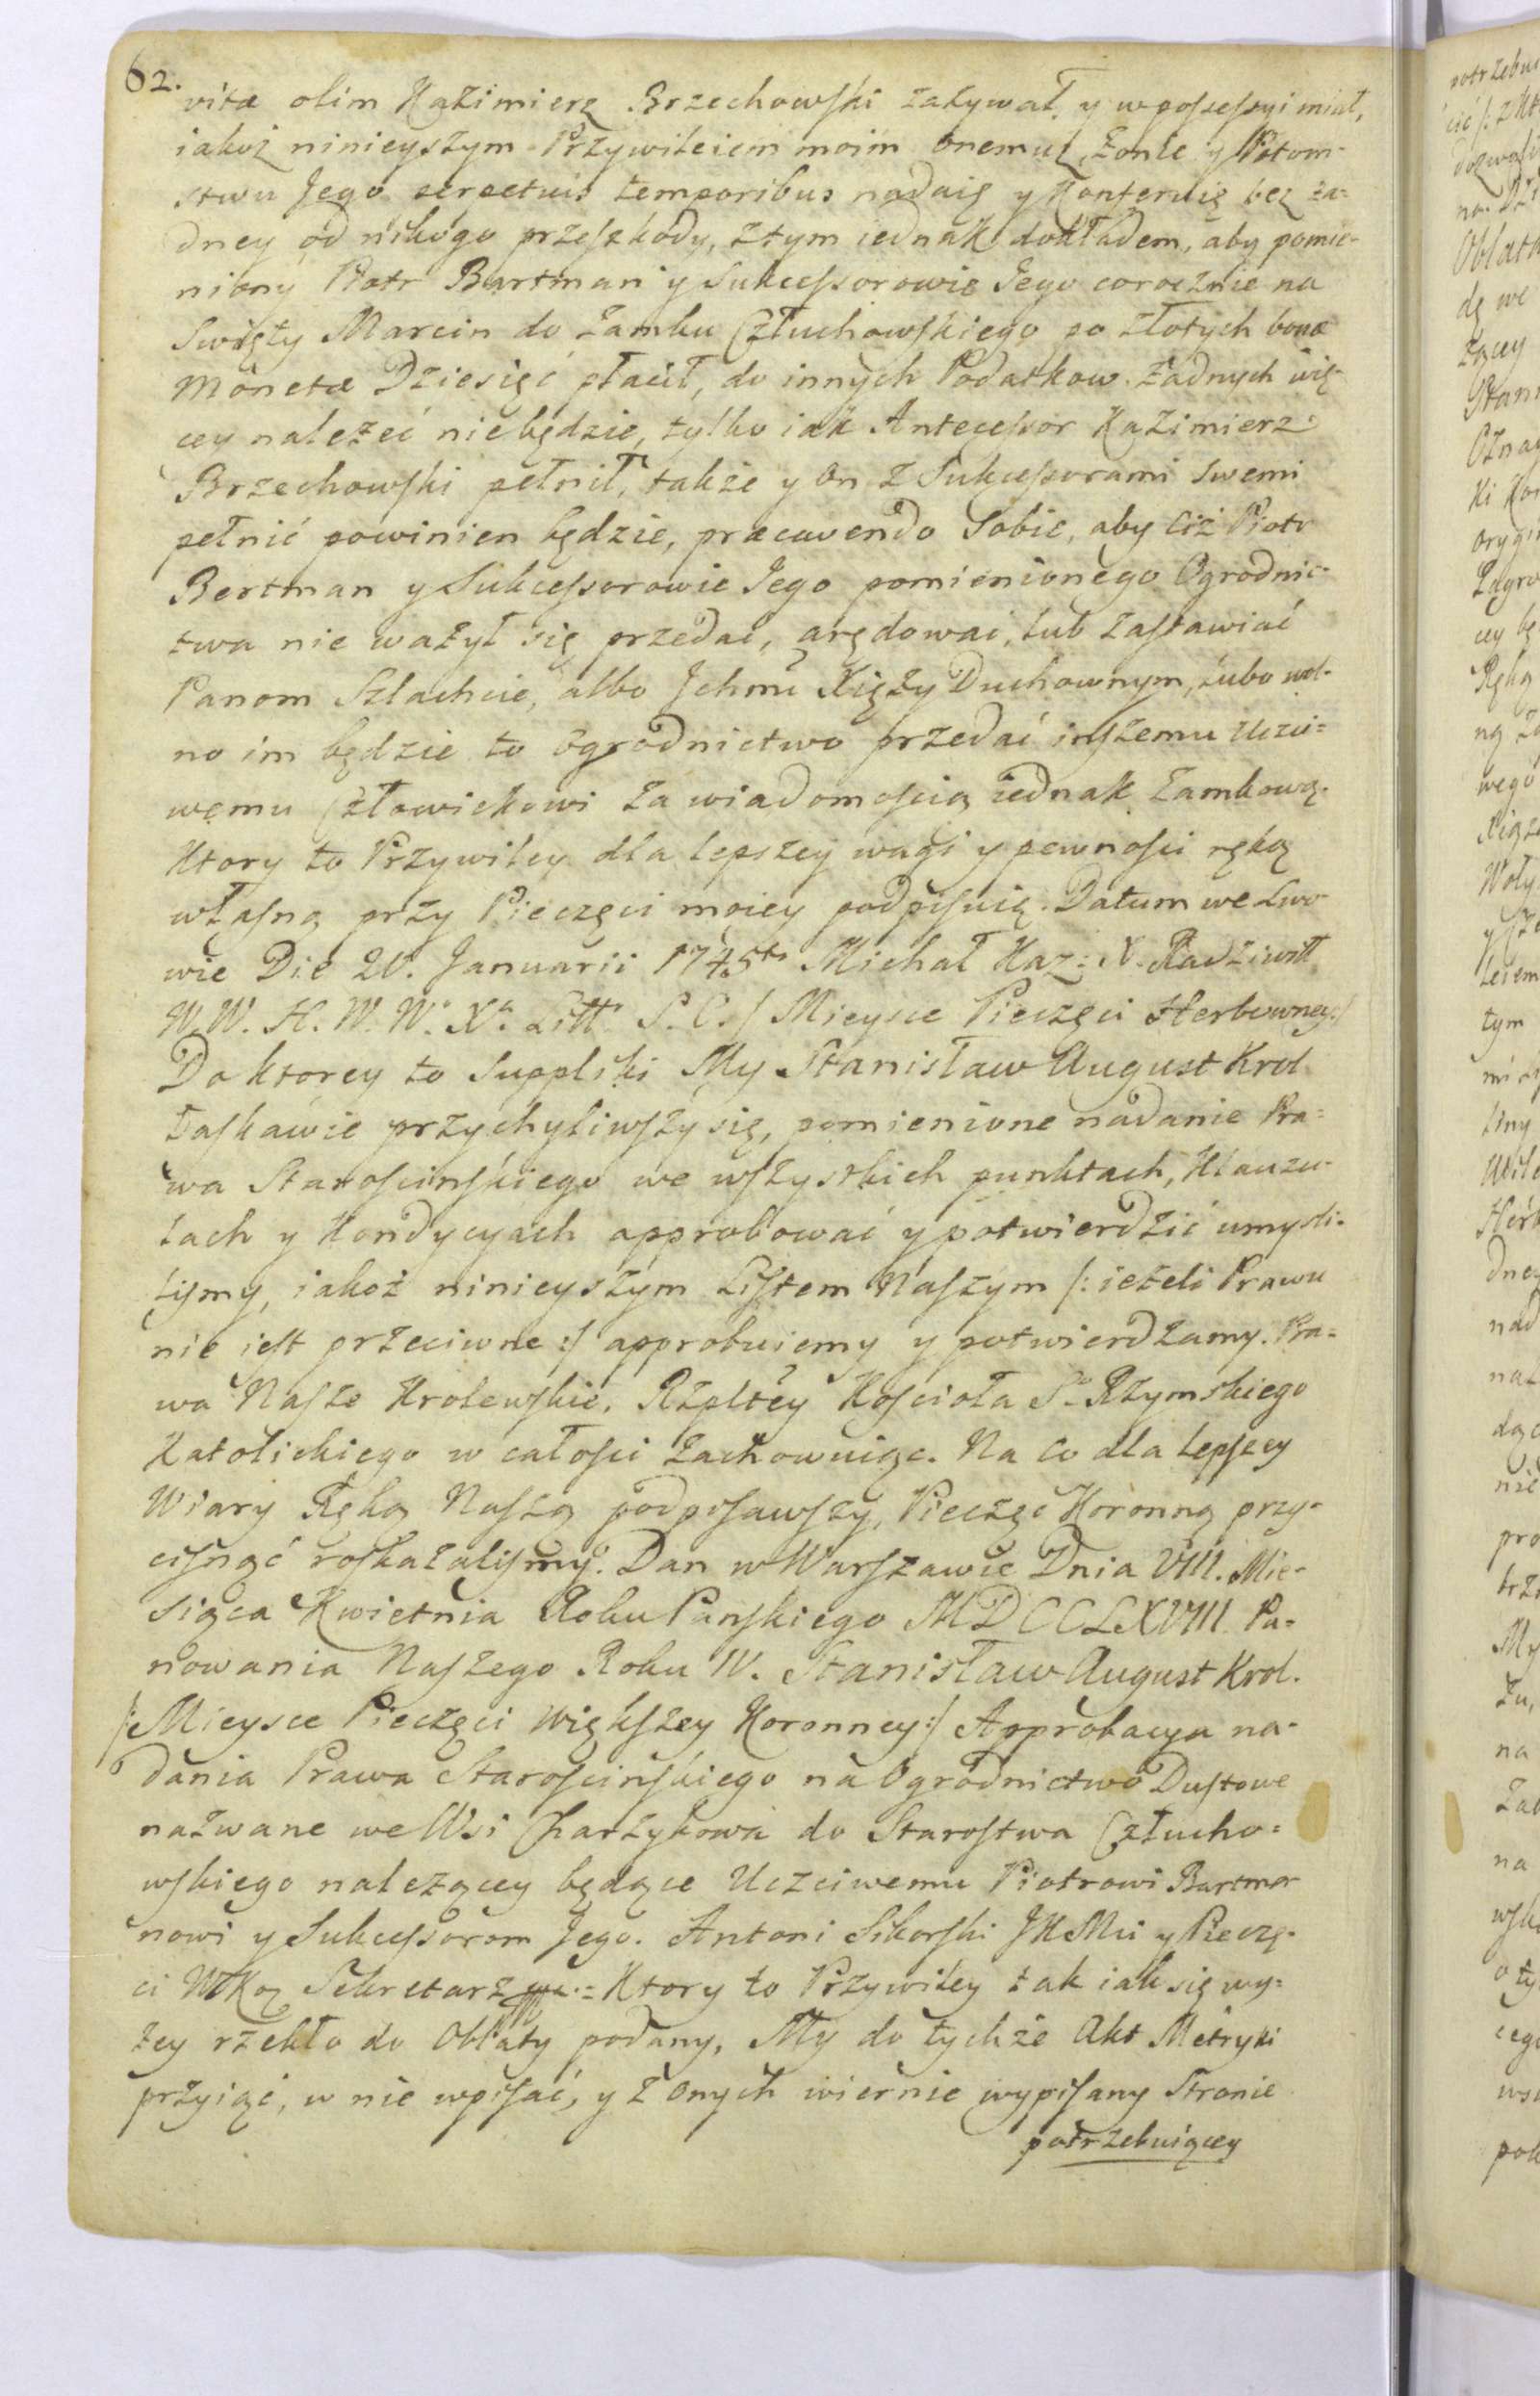 62.
vitæ olim Kaźimierz Brzechowski zażywał, y w possessyi miał,
iakoż ninieyszym Przywileiem moim onemuż, Żonie y Potom-
stwu Jego perpetuis temporibus nadaię y Konferuię bez ża-
dney od nikogo przeszkody, z tym iednak dokładem, aby pomie-
niony Piotr Bartman y Sukcessorowie Jego corocznie na
Swięty Marcin do Zamku Człuchowskiego po złotych bonæ
Monetæ Dziesięć płacił, do innych Podatkow żadnych wię-
cey należeć nie będzie, tylko iak Antecessor Kaźimierz
Brzechowski pełnił, także y On z Sukcessorami swemi
pełnić powinien będzie, præcavendo sobie, aby ciż Piotr
Bertman y Sukcessorowie Jego pomienionego Ogrodnic-
twa nie ważył się przedać, arędować, lub zastawiać
Panom Szlachcie, albo Jchmć Xięży Duchownym, lubo wol-
no im będzie to Ogrodnictwo przedać inszemu Uczci=
wemu Człowiekowi za wiadomoscią iednak Zamkową.
Ktory to Przywiley dla lepszey wagi y pewnosci ręką
własną przy Pieczęci moiey podpisuię. Datum we Lwo-
wie Die 20. Januarii 1745to Michał Kaz: X. Radziwiłł
W. W. H. W. W. Xa. Litto S. C. /Mieysce Pieczęci Herbowney:/
Do ktorey to Suppliki My Stanisław August Krol
łaskawie przychyliwszy się, pomienione nadanie Pra=
wa Staroscinskiego we wszystkich punktach, Klauzu-
łach y Kondycyach approbować y potwierdzić umysli-
lismy, iakoż ninieyszym Listem Naszym /: ieżeli Prawu
nie iest przeciwne :/ approbuiemy y potwierdzamy. Pra=
wa Nasze Krolewskie, Rzpltey Koscioła So Rzymskiego
Katolickiego w całosci zachowuiąc. Na co dla lepszey
Wiary Ręką Naszą podpisawszy, Pieczęć Koronną przy-
cisnąć roskazalismy. Dan w Warszawie Dnia VIII. Mie-
siąca Kwietnia Roku Panskiego MDCCLXVIII. Pa=
nowania Naszego Roku IV. Stanisław August Krol.
/: Mieysce Pieczęci Większey Koronney:/ Approbacya na-
dania Prawa Staroscinskiego na Ogrodnictwo Dustowe
nazwane we Wsi Charzykowa do Starostwa Człucho=
wskiego należącey będące Uczciwemu Piotrowi Bartma
nowi y Sukcessorom Jego. Antoni Sikorski JKMci y Pieczę-
ci WKoy Sekretarz = Ktory to Przywiley tak iak się wy=
żey rzekło do Oblaty podany, My do tychże Akt Metryki
przyiąć, w nie wpisać, y z onych wiernie wypisany Stronie
potrzebuiącey